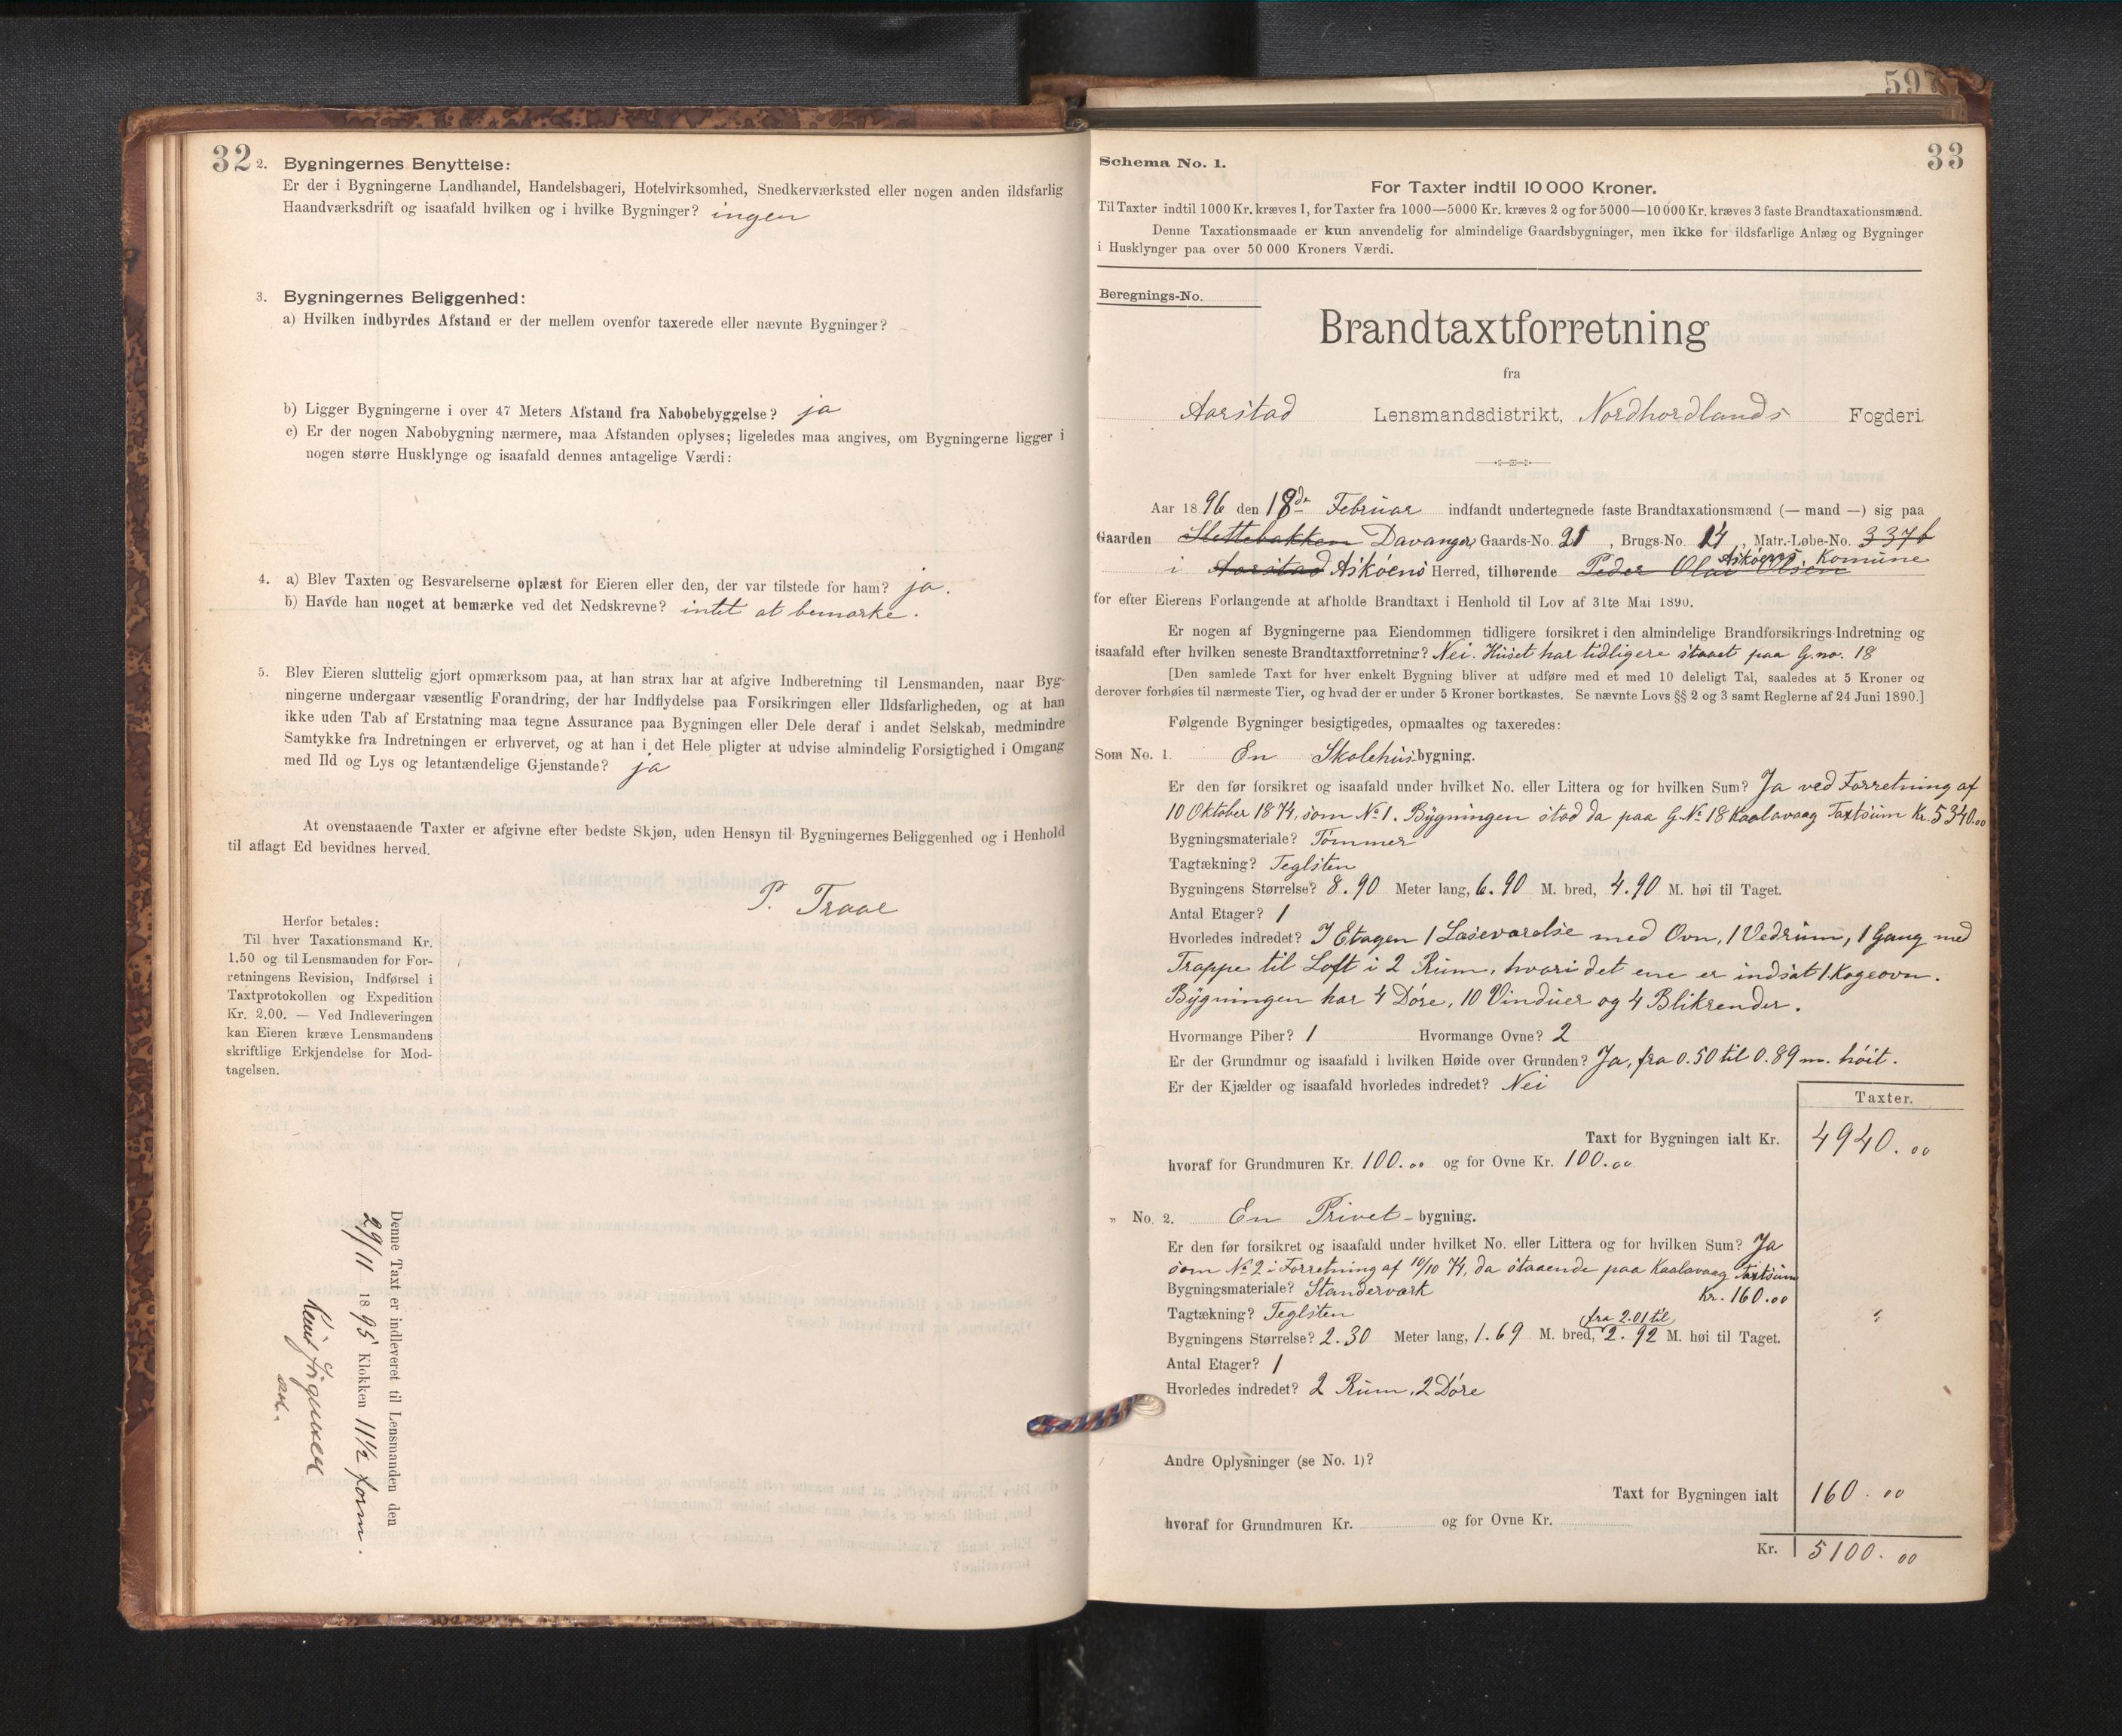 32
2. Bygningernes Benyttelse:
Er der i Bygningerne Landhandel, Handelsbageri, Hotelvirksomhed, Snedkerværksted eller nogen anden ildsfarlig
Haandværksdrift og isaafald hvilken og i hvilke Bygninger? ingen
3. Bygningernes Beliggenhed:
a) Hvilken indbyrdes Afstand er der mellem ovenfor taxerede eller nævnte Bygninger?
b) Ligger Bygningerne i over 47 Meters Afstand fra Nabobebyggelse? ja
c) Er der nogen Nabobygning nærmere, maa Afstanden oplyses; ligeledes maa angives, om Bygningerne ligger i
nogen større Husklynge og isaafald dennes antagelige Værdi:
4. a) Blev Taxten og Besvarelserne oplæst for Eieren eller den, der var tilstede for ham? ja.
b) Havde han noget at bemærke ved det Nedskrevne? intet at bemærke.
5. Blev Eieren sluttelig gjort opmærksom paa, at han strax har at afgive Indberetning til Lensmanden, naar Byg-
ningerne undergaar væsentlig Forandring, der har Indflydelse paa Forsikringen eller Ildsfarligheden, og at han
ikke uden Tab af Erstatning maa tegne Assurance paa Bygningen eller Dele deraf i andet Selskab, medmindre
Samtykke fra Indretningen er erhvervet, og at han i det Hele pligter at udvise almindelig Forsigtighed i Omgang
med Ild og Lys og letantændelige Gjenstande? ja
At ovenstaaende Taxter er afgivne efter bedste Skjøn, uden Hensyn til Bygningernes Beliggenhed og i Henhold
til aflagt Ed bevidnes herved.
P. Traae
Herfor betales:
Til hver Taxationsmand Kr.
1.50 og til Lensmanden for For-
retningens Revision, Indførsel i
Taxtprotokollen og Expedition
Kr. 2.00. — Ved Indleveringen
kan Eieren kræve Lensmandens
skriftlige Erkjendelse for Mod-
tagelsen.
Denne Taxt er indleveret til Lensmanden den
29/11 1895 Klokken 11½ form.
33
597
Schema No. 1.
For Taxter indtil 10 000 Kroner.
Til Taxter indtil 1000 Kr. kræves 1, for Taxter fra 1000—5000 Kr. kræves 2 og for 5000—10 000 Kr. kræves 3 faste Brandtaxationsmænd.
Denne Taxationsmaade er kun anvendelig for almindelige Gaardsbygninger, men ikke for ildsfarlige Anlæg og Bygninger
i Husklynger paa over 50 000 Kroners Værdi.
Beregnings-No.
Brandtaxtforretning
fra
Aarstad Lensmandsdistrikt, Nordhordlands Fogderi.
Aar 1896 den 18de Februar indfandt undertegnede faste Brandtaxationsmænd (— mand —) sig paa
Gaarden Slettebakken Davanger, Gaards-No. 21, Brugs-No. 14, Matr.-Løbe-No. 337b
i Aarstad Askøens Herred, tilhørende Peder Olai Olsen Askøens Komune
for efter Eierens Forlangende at afholde Brandtaxt i Henhold til Lov af 31te Mai 1890.
Er nogen af Bygningerne paa Eiendommen tidligere forsikret i den almindelige Brandforsikrings-Indretning og
isaafald efter hvilken seneste Brandtaxtforretning? Nei. Huset har tidligere staaet paa G.no. 18
[Den samlede Taxt for hver enkelt Bygning bliver at udføre med et med 10 deleligt Tal, saaledes at 5 Kroner og
derover forhøies til nærmeste Tier, og hvad der er under 5 Kroner bortkastes. Se nævnte Lovs §§ 2 og 3 samt Reglerne af 24 Juni 1890.]
Følgende Bygninger besigtigedes, opmaaltes og taxeredes:
Som No. 1. En Skolehusbygning.
Er den før forsikret og isaafald under hvilket No. eller Littera og for hvilken Sum? Ja ved Forretning af
10 Oktober 1874, som No 1. Bygningen stod da paa G No 18 Kaalavaag Taxtsum Kr. 5340.00
Bygningsmateriale? Tømmer
Tagtækning? Teglsten
Bygningens Størrelse? 8.90 Meter lang, 6.90 M. bred, 4.90 M. høi til Taget.
Antal Etager? 1
Hvorledes indredet? I Etagen 1 Læseværelse med Ovn, 1 Vedrum, 1 Gang med
Trappe til Loft i 2 Rum, hvori det ene er indsat 1 Kogeovn.
Bygningen har 4 Døre, 10 Vinduer og 4 Blikrender.
Hvormange Piber? 1 Hvormange Ovne? 2
Er der Grundmur og isaafald i hvilken Høide over Grunden? Ja, fra 0.50 til 0.89 m. høit.
Er der Kjælder og isaafald hvorledes indredet? Nei
Taxter.
Taxt for Bygningen ialt Kr. 4940.00
hvoraf for Grundmuren Kr. 100.00 og for Ovne Kr. 100.00
" No. 2. En Privet-bygning.
Er den før forsikret og isaafald under hvilket No. eller Littera og for hvilken Sum? Ja
som No 2 i Forretning af 10/10 74, da staaende paa Kaalavaag Taxtsum
Bygningsmateriale? Standerværk Kr. 160.00
Tagtækning? Teglsten
Bygningens Størrelse? 2.30 Meter lang, 1.69 M. bred, fra 2.01 til 2.92 M. høi til Taget.
Antal Etager? 1
Hvorledes indredet? 2 Rum, 2 Døre
Andre Oplysninger (se No. 1)?
Taxt for Bygningen ialt 160.00
hvoraf for Grundmuren Kr. og for Ovne Kr.
Kr. 5100.00